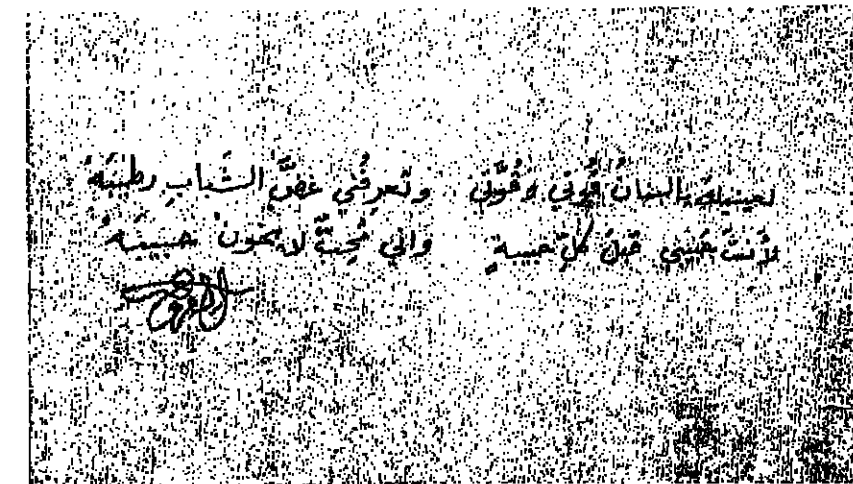 لعينيك يا لبنان قوتي وقوتي وتعرفني غضَّ الشَّبابِ رطيبَهُ
لأنتَ حبيبي قبلَ كلِّ حبيبةٍ وإني مُحِبٌّ لا يخونُ حبيبَهُ